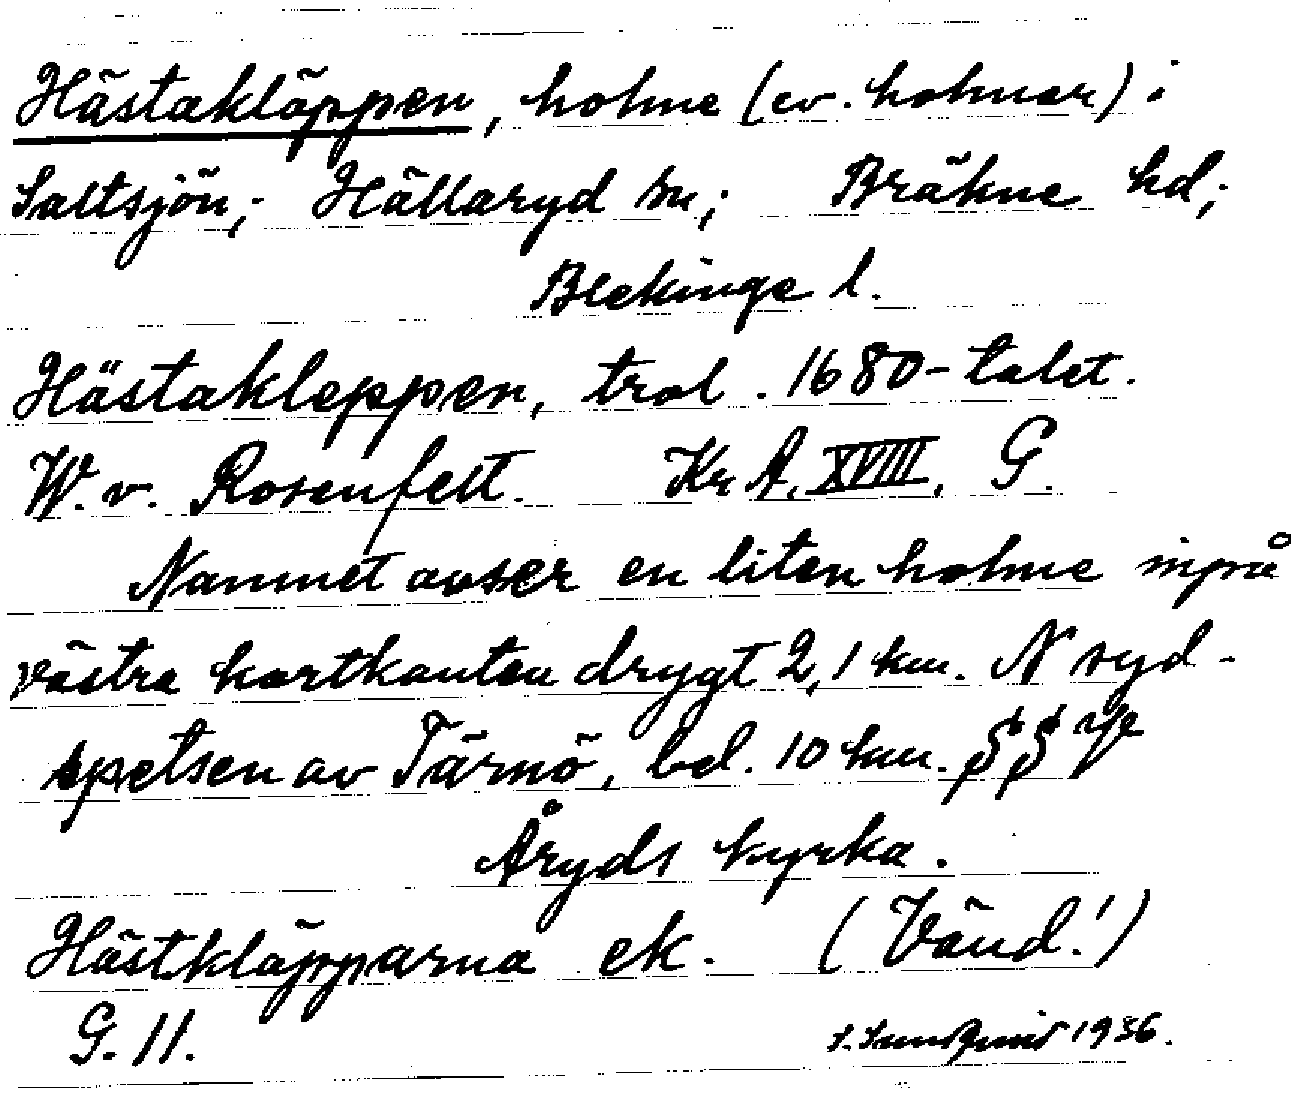 Hästakläppen, holme (ev. holmar) i
Saltsjön; Hällaryd sn; Bräkne hd;
Blekinge l.
Hästakleppen, trol. 1680-talet.
W. v. Rosenfelt. Kr A. XVIII. G.
Namnet avser en liten holme inpå
västra kartkanten drygt 2,1 km. N syd-
spetsen av Tärnö, bel. 10 km.
Åryds kyrka.
Hästkläpparna ek. (Vänd!)
G. 11. 1936.